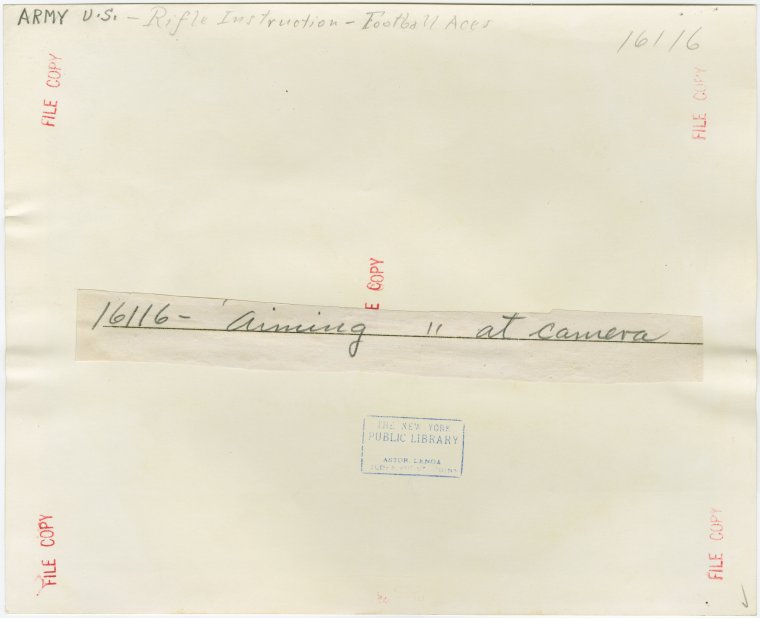 ARMY U.S. - Rifle Instruction - Football Aces
16116
FILE COPY
FILE COPY
E COPY
16116 - 'Aiming " at camera
THE NEW YORK
PUBLIC LIBRARY
ASTOR, LENOX
FILE COPY
FILE COPY